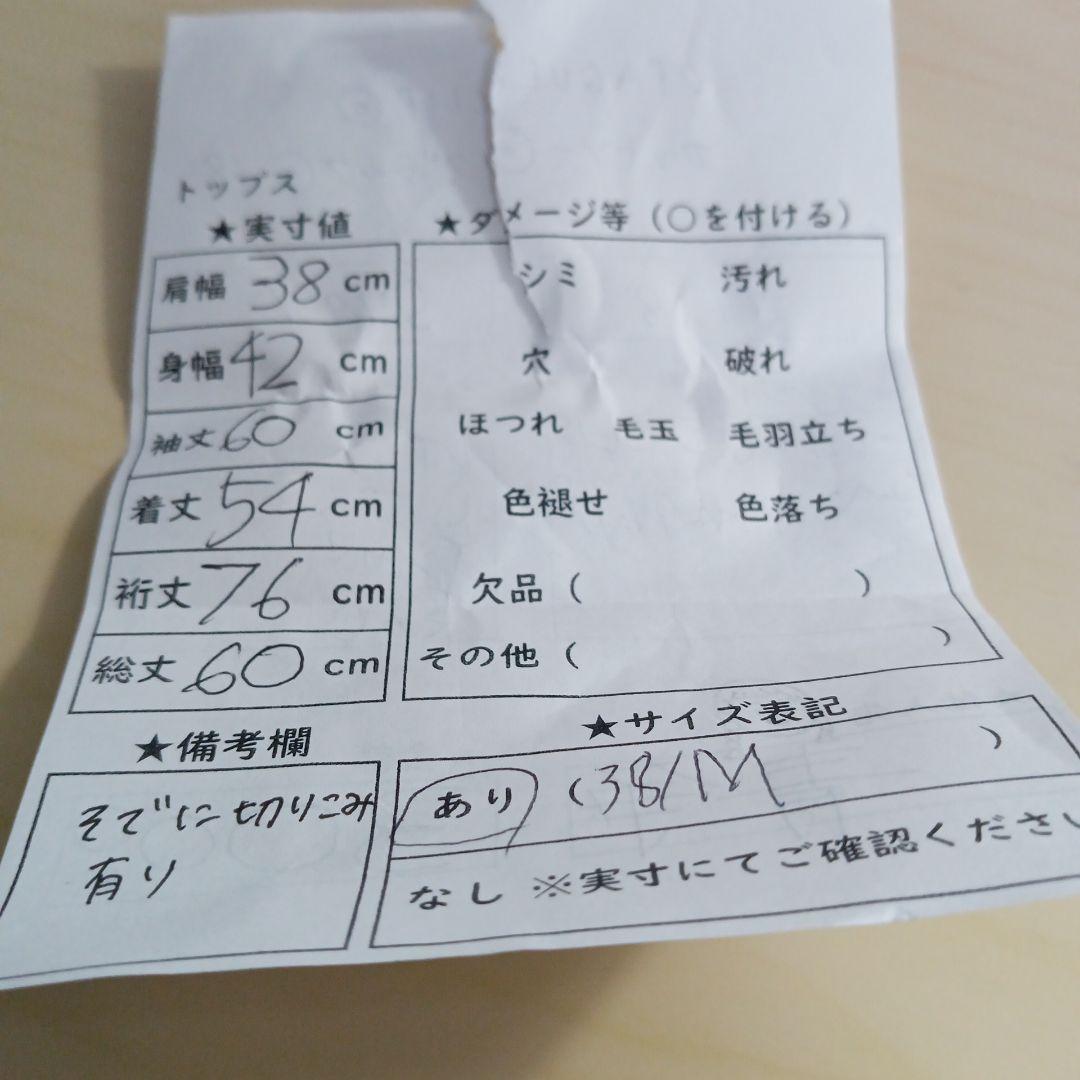 トップス
★実寸値
肩幅 38 cm
身幅 42 cm
袖丈 60 cm
着丈 54 cm
裄丈 76 cm
総丈 60 cm
★ダメージ等（○を付ける）
シミ 汚れ
穴 破れ
ほつれ 毛玉 毛羽立ち
色褪せ 色落ち
欠品（ ）
その他（ ）
★備考欄
そでに切りこみ
有り
★サイズ表記
あり （38/M ）
なし ※実寸にてご確認ください